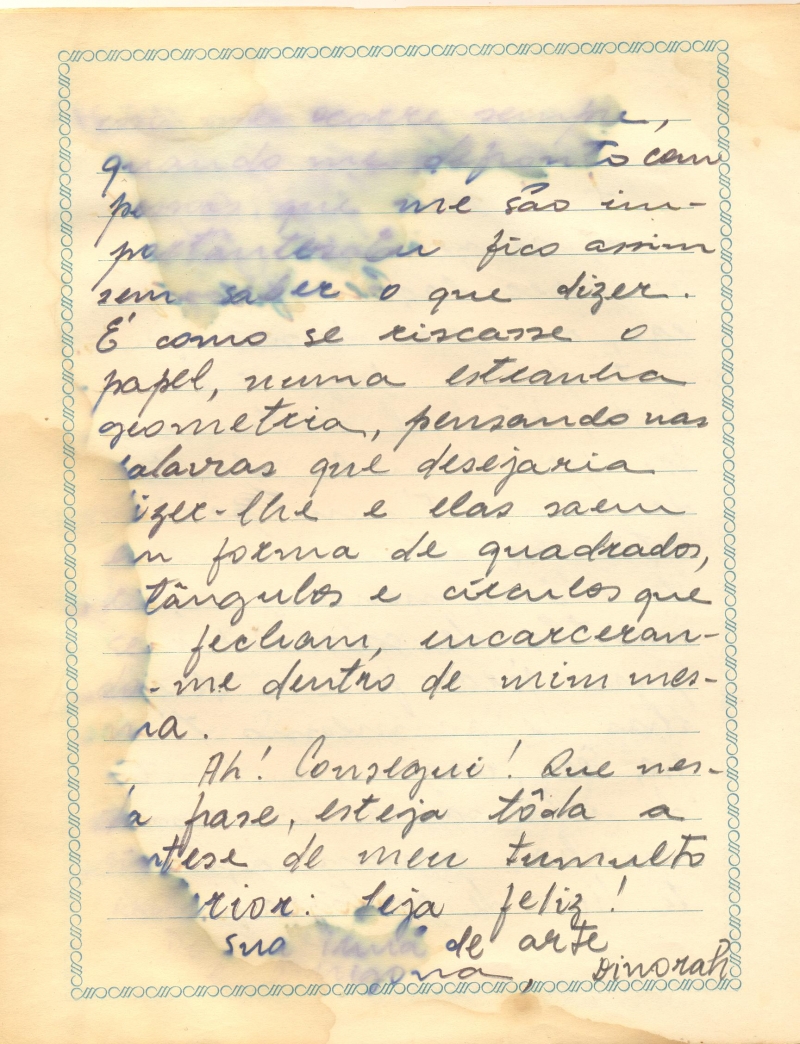 ocorre sempre,
quando me defronto com
me são im-
portantes. Eu fico assim
sem saber o que dizer.
É como se riscasse o
papel, numa estranha
geometria, pensando nas
alavras que desejaria
izer-lhe e elas saem
m forma de quadrados,
tângulos e círculos que
fecham, encarceran-
-me dentro de mim mes-
ma.
Ah! Consegui! Que nes-
a frase, esteja tôda a
ntese de meu tumulto
rior: Seja feliz!
sua irmã de arte
Dinorah